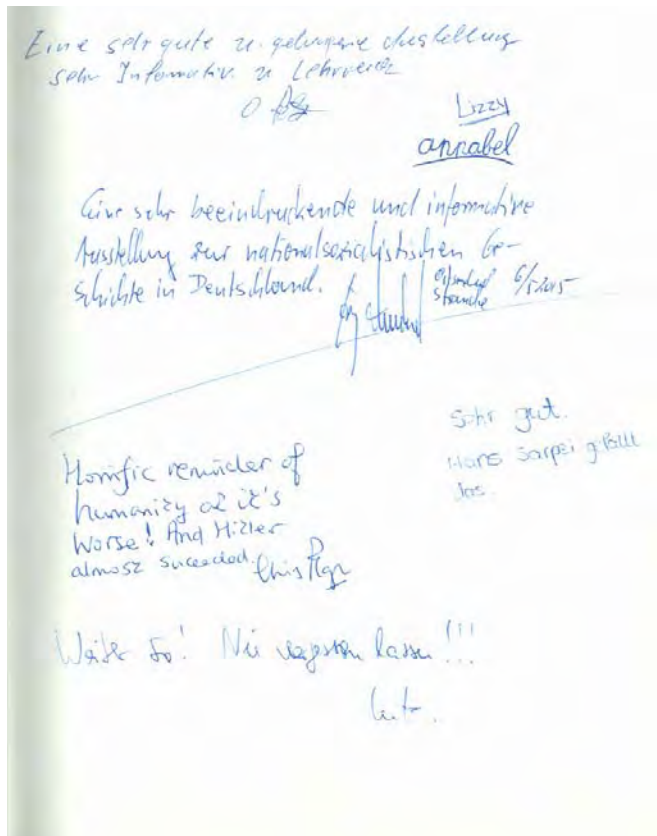 Eine sehr gute u. gelungene Ausstellung
sehr Informativ u Lehrreich
Lizzy
annabel
Eine sehr beeindruckende und informative
Ausstellung zur nationalsozialistischen Ge-
schichte in Deutschland.
6/5 2015
Sehr gut.
Hans Sarpei gefällt
das.
Horrific reminder of
humanity at it's
Worse! And Hitler
almost succeeded.
Chris
Weiter so! Nie vergessen lassen!!!